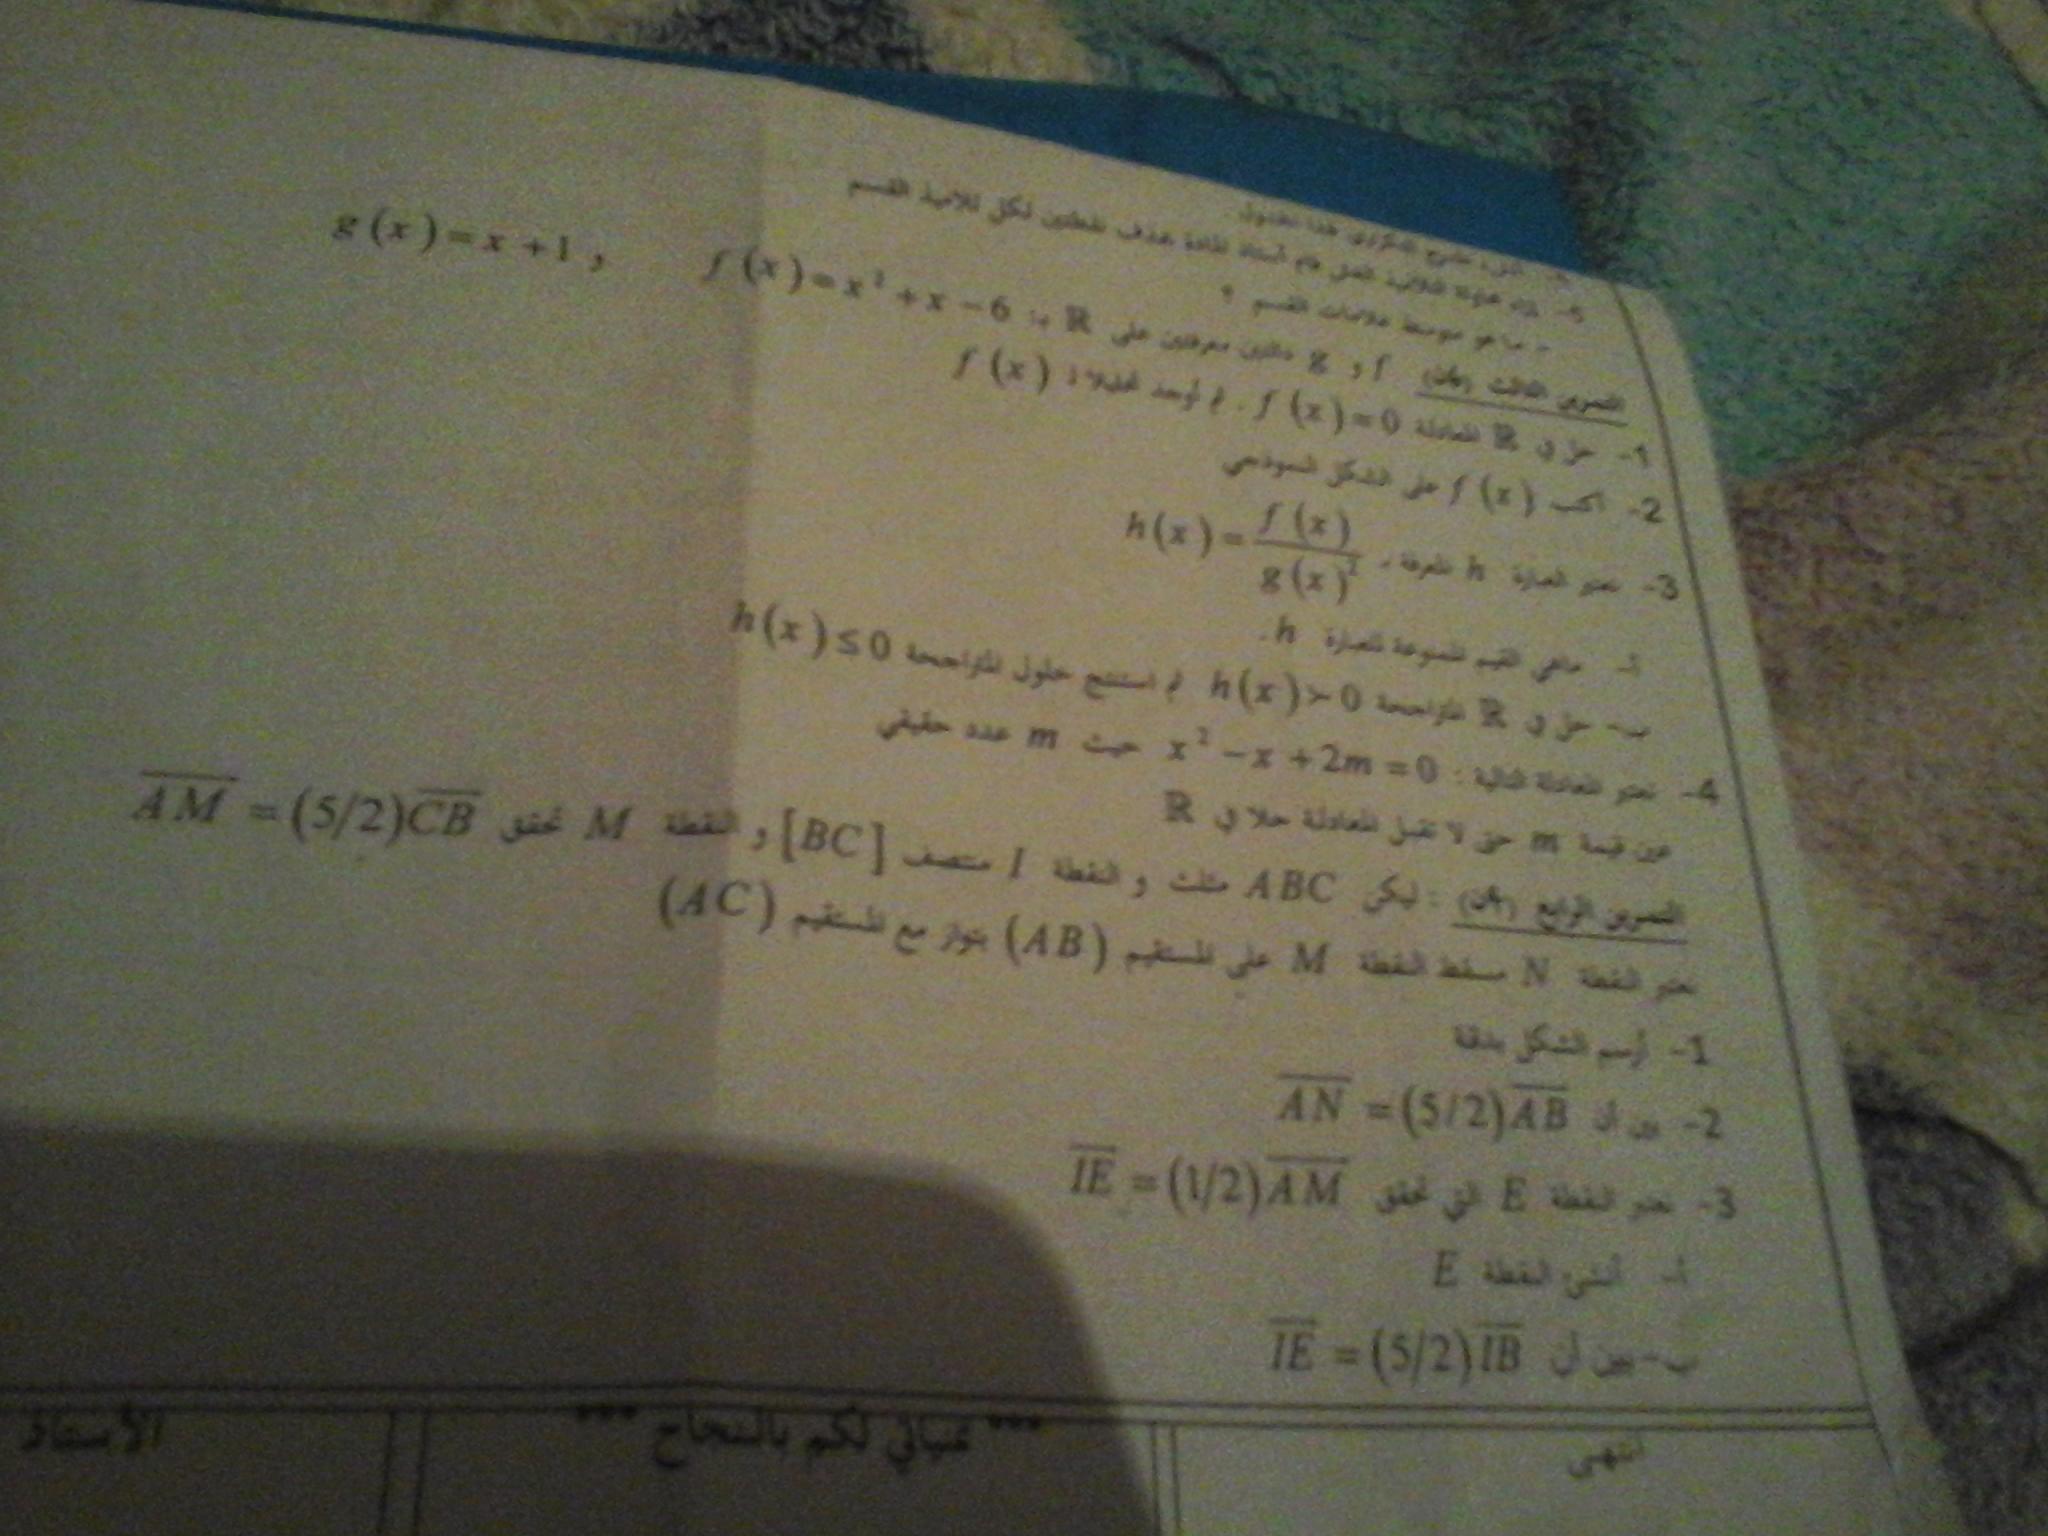 5- ما هو متوسط علامات القسم ؟
التمرين الثالث f و g دالتين معرفتين على ℝ بـ: f(x)=x²+x-6 , g(x)=x+1
1- حل في ℝ المعادلة f(x)=0. ثم أوجد تحليلا لـ f(x)
2- اكتب f(x) على الشكل النموذجي
3- نعتبر العبارة h المعرفة h(x)=f(x)/g(x)²
أ- ماهي القيم الممنوعة للعبارة h.
ب- حل في ℝ المتراجحة h(x)>0 ثم استنتج حلول المتراجحة h(x)≤0
4- نعتبر المعادلة التالية : x²-x+2m=0 حيث m عدد حقيقي
عين قيمة m حتى لا تقبل المعادلة حلا في ℝ
التمرين الرابع : ليكن ABC مثلث و النقطة I منتصف [BC] و النقطة M تحقق AM = (5/2)CB
نعتبر النقطة N مسقط النقطة M على المستقيم (AB) بتواز مع المستقيم (AC)
1- أرسم الشكل بدقة
2- بين أن AN = (5/2)AB
3- نعتبر النقطة E التي تحقق IE = (1/2)AM
أ- أنشئ النقطة E
ب- بين أن IE = (5/2)IB
انتهى *** تمنياتي لكم بالنجاح *** الأستاذ